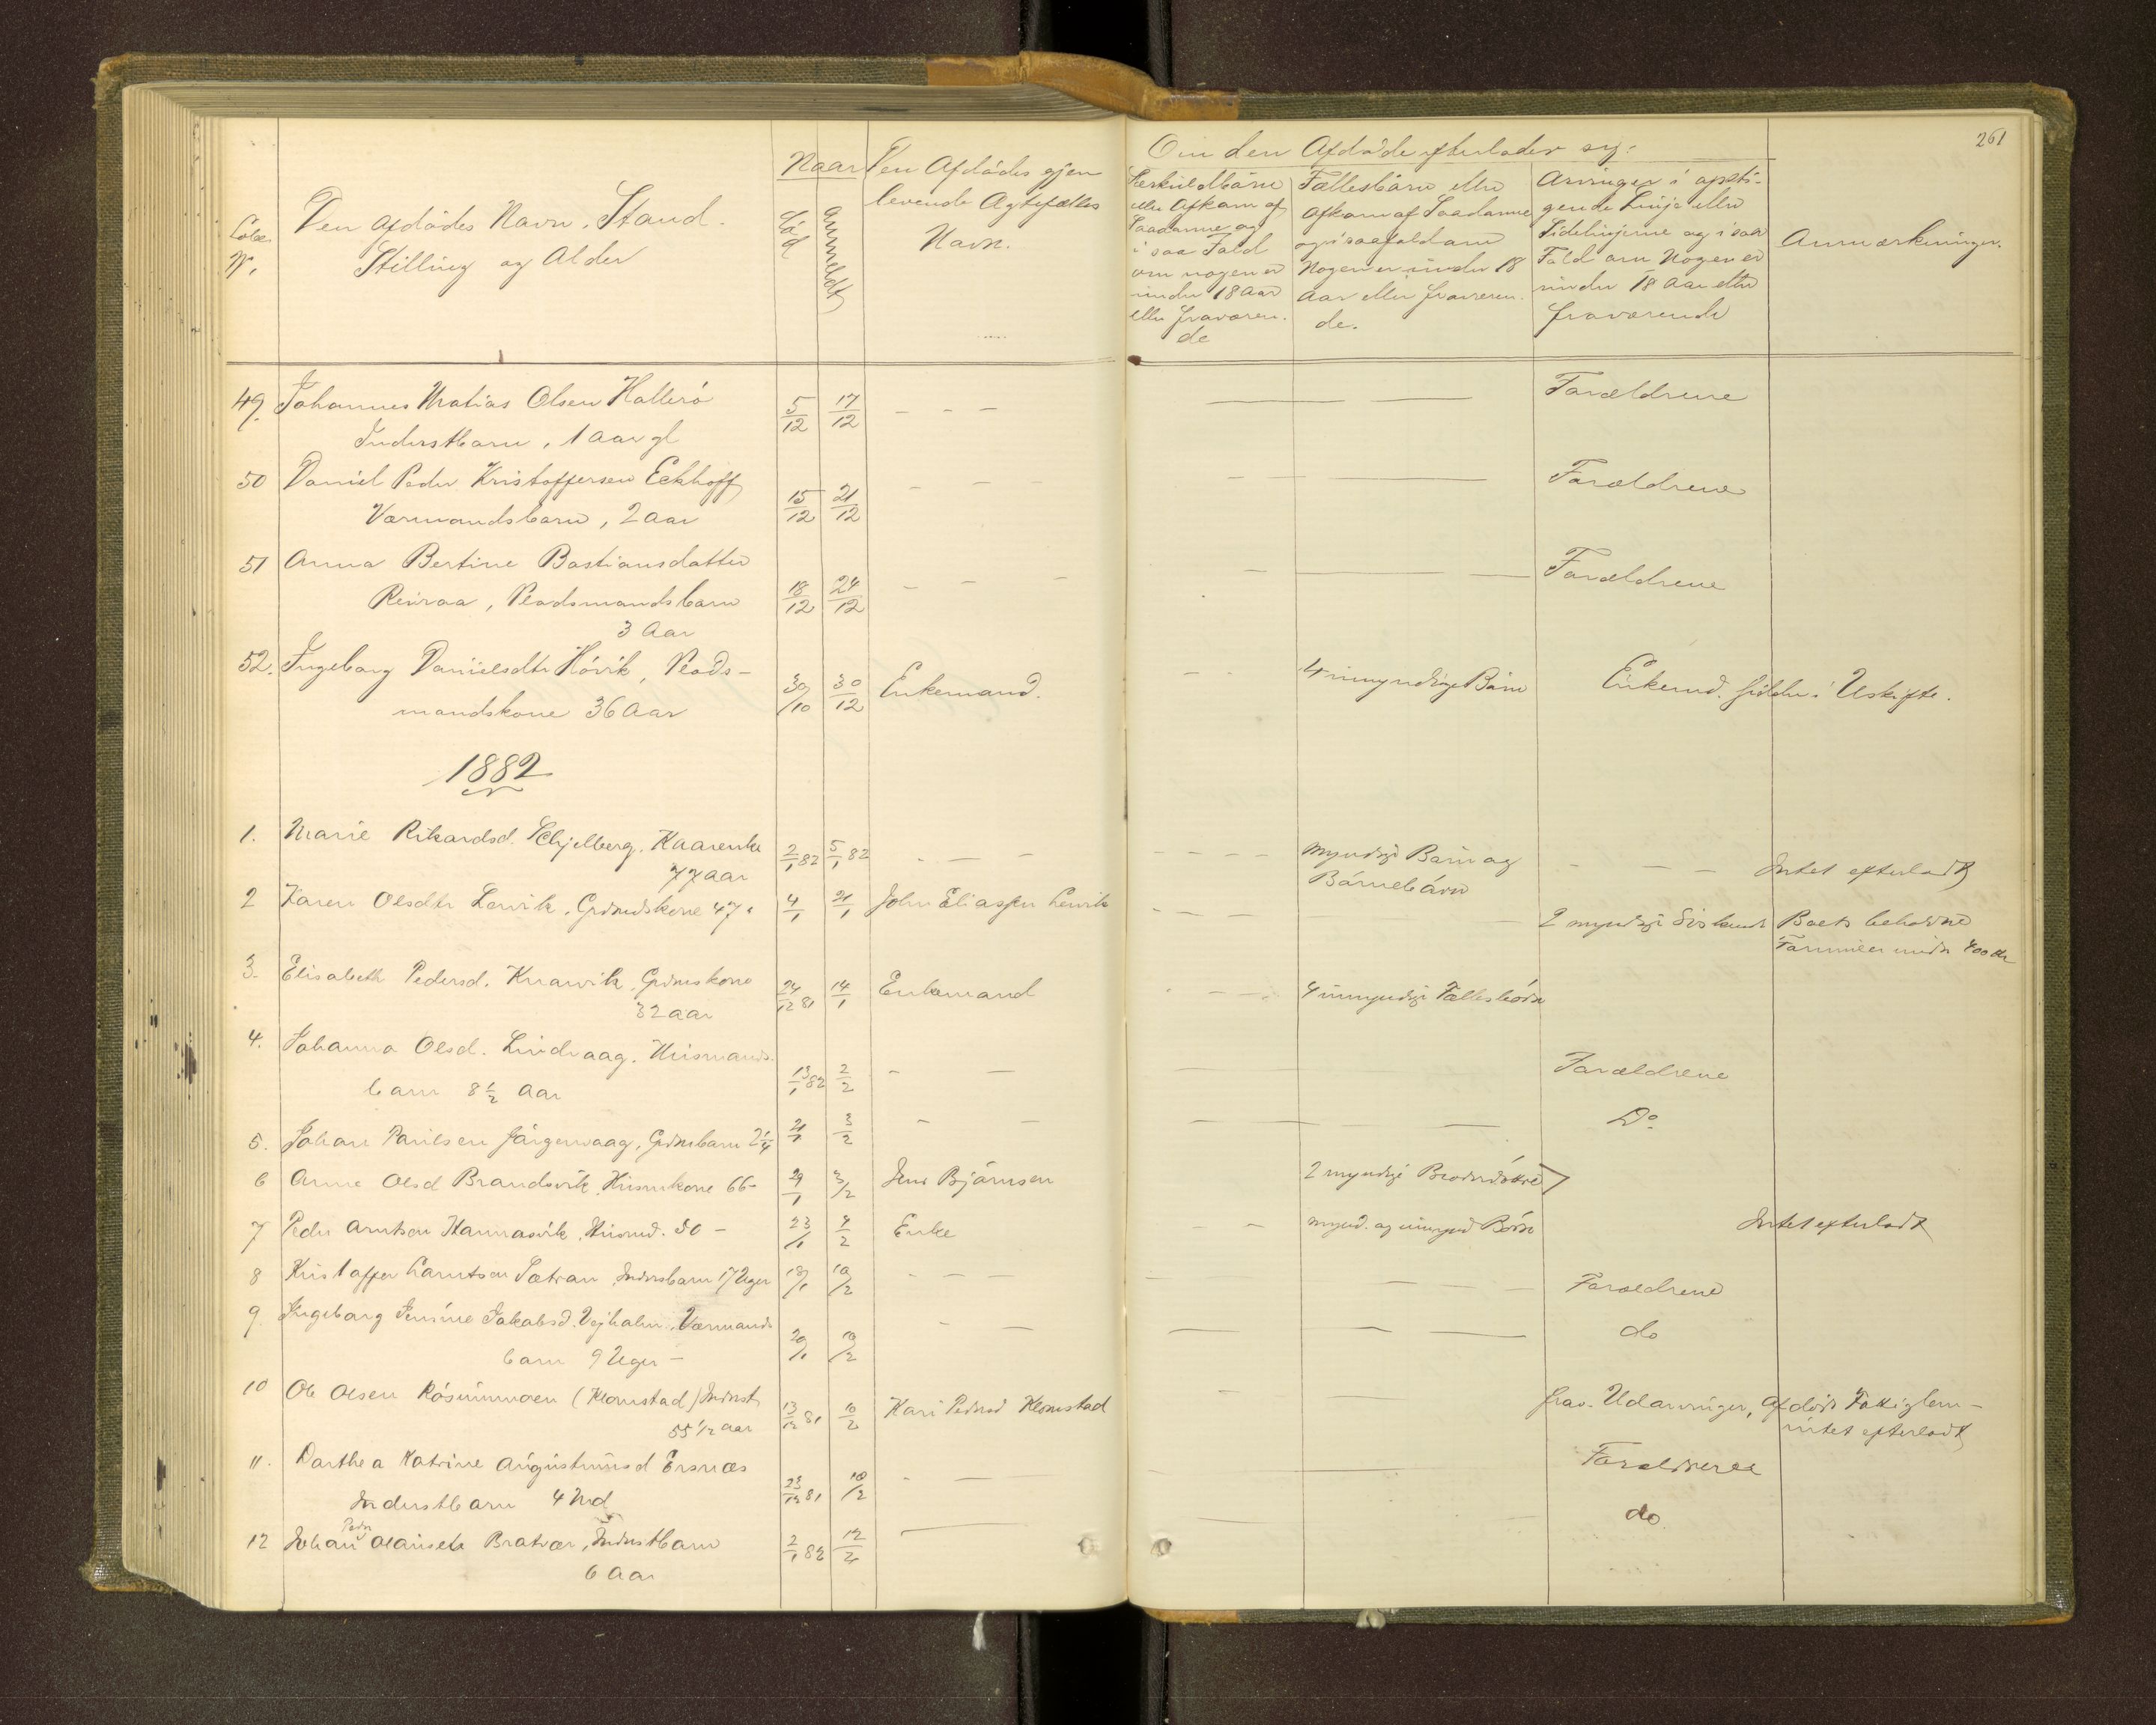 261
Löbe
No.
Den Afdödes Navn, Stand
Stilling og Alder
Naar
Död
Anmeldt
Den Afdödes gjen
levende Ægtefælles
Navn.
Om den Afdöde efterlader sig:
Særkuldbörn
eller Afkom af
Saadanne og
i saa Fald
om nogen er
under 18 Aar
eller fraværen.
de
Fællesbörn eller
Afkom af Saadanne
og i saafald om
Nogen er under 18
Aar eller fraværen
de.
Arvinger i opsti-
gende Linje eller
Sidelinjerne og i saa
Fald om Nogen er
under 18 Aar eller
fraværende
Anmærkninger.
49. Johannes Matias Olsen Hallerö 5/12 17/12 - - - Forældrene
Inderstbarn, 1 Aar gl
50 Daniel Peder Kristoffersen Eckhoff 15/12 21/12 - - - Forældrene
Værmandsbarn, 2 Aar
51 Anna Bertine Bastiansdatter
Reiraa, Pladsmandsbarn 18/12 24/12 - - - Forældrene
3 Aar
52. Ingeborg Danielsdtr Hövik, Plads- 30/10 30/12 Enkemand. 4 umyndige Börn Enkemd. sidder i Uskifte.
mandskone 36 Aar
1882
1. Marie Rikardsd. Schjelberg, Kaarenke 2/1 82 5/1 82 - - - myndige Börn og - - - Intet efterladt
77 Aar Börnebörn
2 Karen Olsdtr Lervik, Grdmdskone 47 " 4/1 21/1 John Eliassen Lervik 2 myndige Siskend Boets beholdne
Formue er under 400 Kr
3. Elisabeth Pedersd. Knarvik, Grdmskone 24/12 81 14/1 Enkemand 4 umyndige Fællesbörn
32 Aar
4. Johanna Olsd. Lindvaag, Husmands
barn 8 1/2 Aar 13/1 82 2/2 - - Forældrene
5. Johan Paulsen Jörgenvaag, Grdmbarn 2 1/4 21/1 3/2 - - Do
6 Anne Olsd Brandsvik, Husmkone 66 - 29/1 3/2 Jens Björnsen 2 myndige Broderdöttre
7 Peder Arntsen Hamnasvik, Husmd. 50 - 23/1 4/2 Enke mynd. og umynd Börn Intet efterladt
8 Kristoffer Larntsen Sætran, Inderstbarn 17 Uger 18/1 10/2 - - - Forældrene
9. Ingeborg Jensine Jakobsd. Vejholm, Værmands
barn 9 Uger - 20/1 10/2 - - do
10 Ole Olsen (Klomstad) Inderst, 13/12 81 10/2 Kari Pedersd Klomstad frav. Udarvinger, Afdöde Fattiglem -
55 1/2 Aar intet efterladt
11. Darthea Katrine Augustinusd Ersnæs
Inderstbarn 4 Md 23/12 81 10/2 - - Forældrene
12 Johan Peder Olausen Bratvær, Inderstbarn 2/1 82 12/2 do
6 Aar